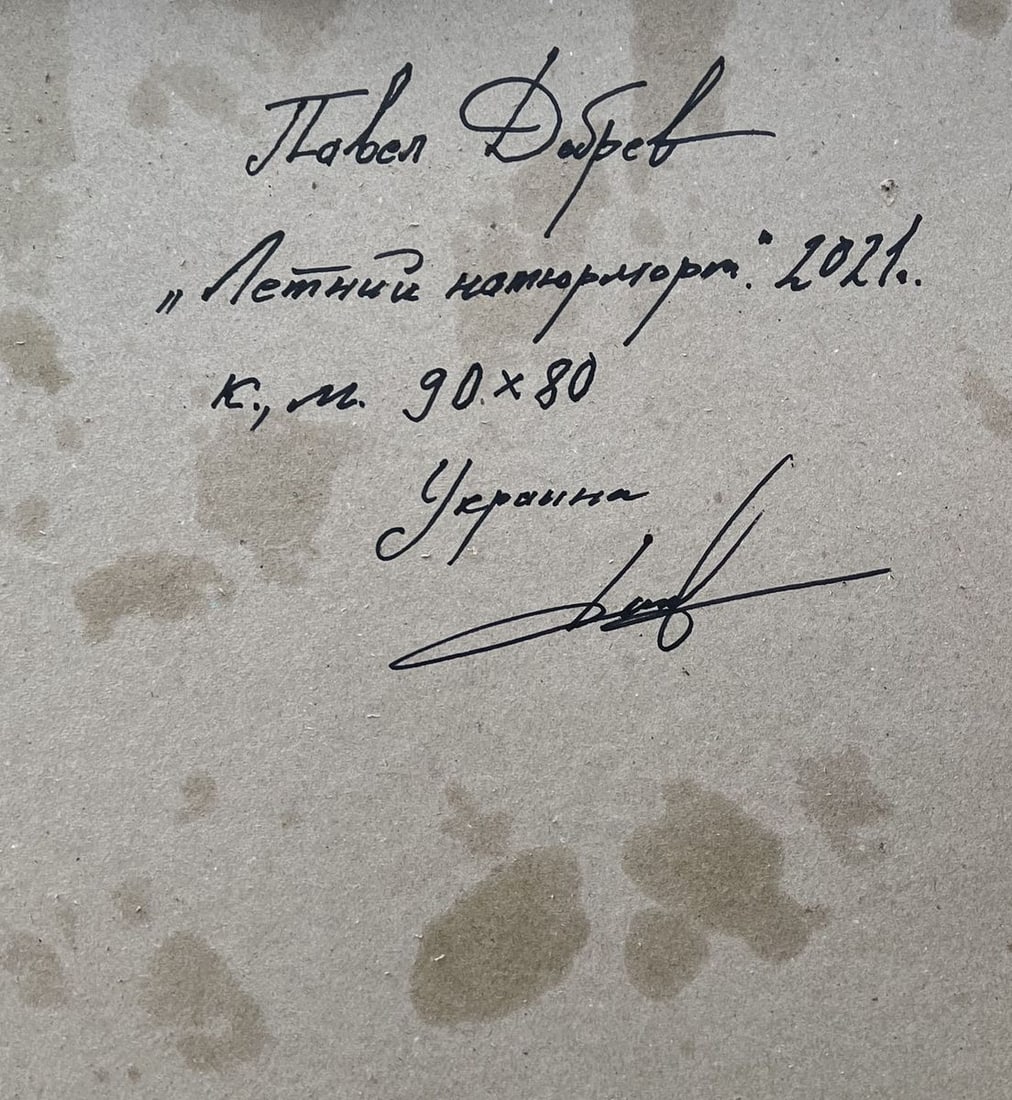 Павел Добрев
„Летний натюрморт". 2021.
к., м. 90×80
Украина